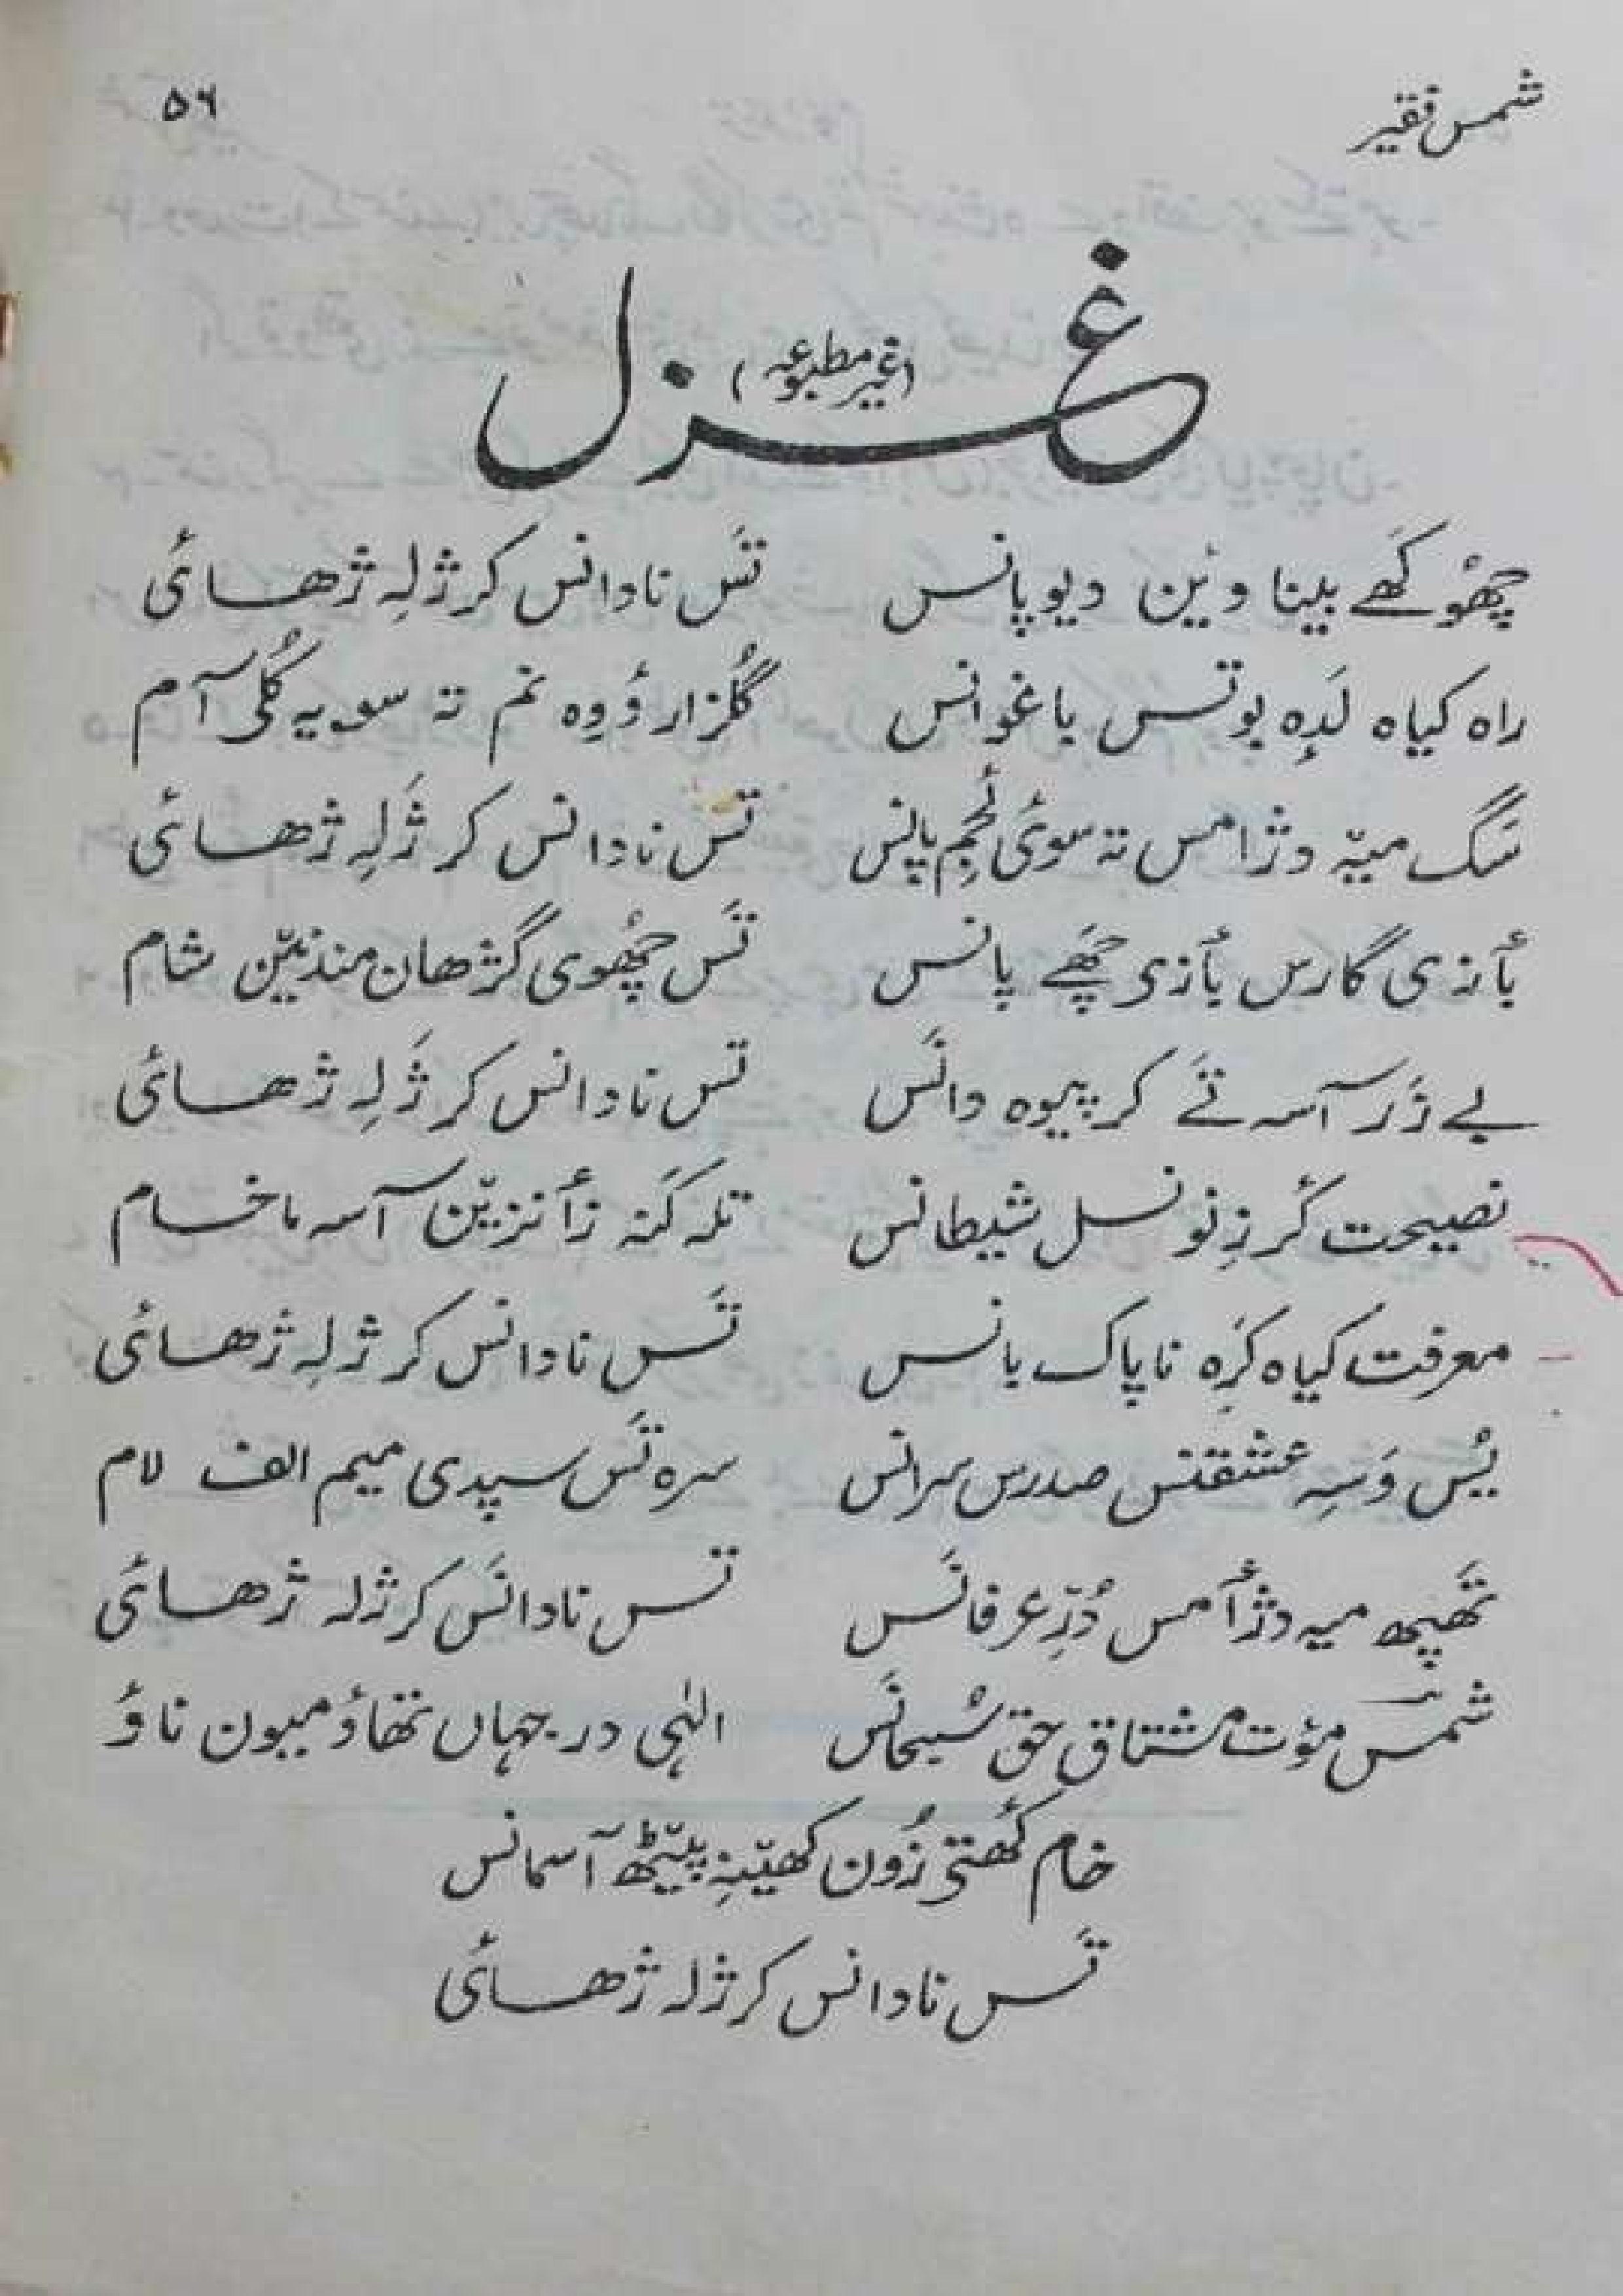 شمس فقیر ۵۶
غزل
(غیر مطبوعہ)
چھُو کَھے بلینا وئین دیوپانس تَس نادانس کر ژلہِ ژھائی
راہ کیاہ لَدِہ بوتس باغوانس گُلزار وُوِہ نم تہ سویہ گُلی آم
سَگ میّہ دژامس تہ سوئی لٔجِم پانس تَس نادانس کر ژَلہِ ژھائی
بٔازی گارس بٔازی چھَے پانس تَس چھُوی گژھان منذنیّن شام
بے زَر آسہ تَے کر پیوہ دانَس تَس نادانس کر ژَلہِ ژھائی
نصیحت گرزِنو نسل شیطانس تلہ کَنہ زٔانزیّن آسہ ما خام
معرفت کیاہ کرِہ ناپاک بانس تَس نادانس کر ژلہِ ژھائی
یُس وَسہِ عشقنس صدرس سرانس سرہ تَس سپدی میم الف لام
تَھپھ میہ دژٔامس دُرِّ عرفانَس تَس نادانَس کر ژلہ ژھائی
شمسؔ موٗت مشتاق حق سُبحانَس الٰہی در جہاں تھاوُ میون ناوُ
خام کُھتی زُون کھیّنہِ پیّٹھ آسمانس
تَس نادانس کر ژلہ ژھائی